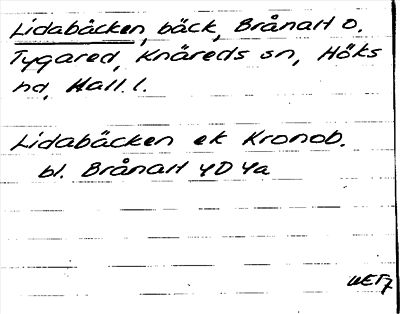 Lidabäcken, bäck, Brånalt o.
Tygared, Knäreds sn, Höks
hd, Hall. l.
Lidabäcken ek Kronob.
bl. Brånalt 4D 4a